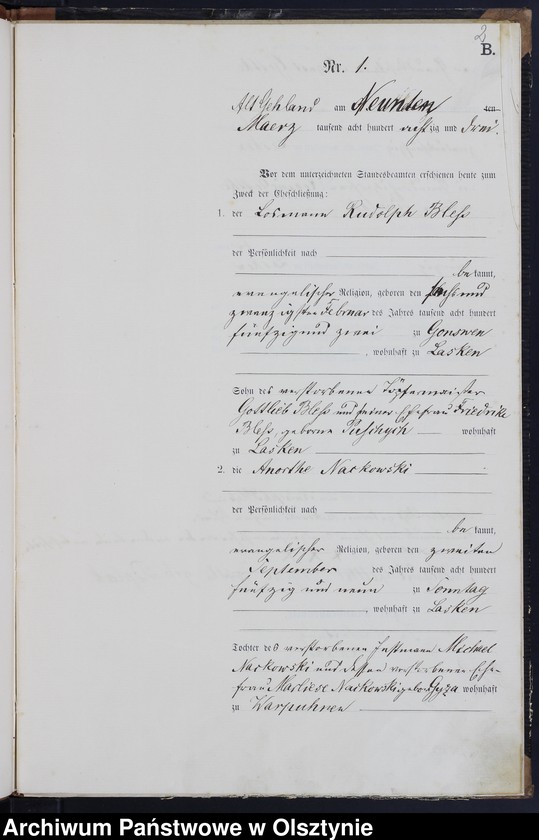 2
B.
Nr. 1.
Alt Gehland am Neunten ten
Maerz tausend acht hundert achtzig und drei.
Vor dem unterzeichneten Standesbeamten erschienen heute zum
Zweck der Eheschließung:
1. der Losmann Rudolph Bless
der Persönlichkeit nach
be kannt,
evangelischer Religion, geboren den sechs und
zwanzigsten Februar des Jahres tausend acht hundert
fünfzig und zwei zu Gonswen
, wohnhaft zu Lasken
Sohn des verstorbenen Töpfermeister
Gottlieb Bless und seiner Ehefrau Friedrike
Bless, geborne wohnhaft
zu Lasken
2. die Anorthe Nackowski
der Persönlichkeit nach
be kannt,
evangelischer Religion, geboren den zweiten
September des Jahres tausend acht hundert
fünfzig und neun zu Sonntag
, wohnhaft zu Lasken
Tochter des verstorbenen Instmann Michael
Nackowski und dessen verstorbenen Ehe-
frau Marliese Nackowski gebor Gyza wohnhaft
zu Warpuhnen
Archiwum Państwowe w Olsztynie